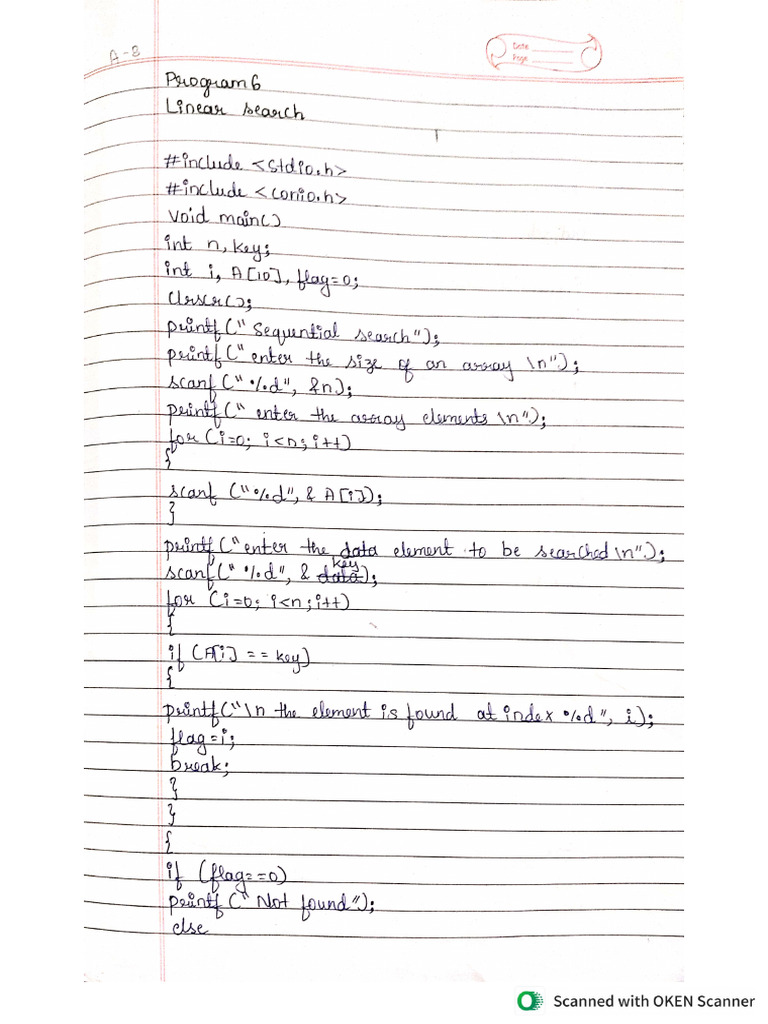 A-8
Date
Page
Program 6
Linear search
#include <stdio.h>
#include <conio.h>
void main()
int n, key;
int i, A[10], flag=0;
clrscr();
printf("Sequential search");
printf("enter the size of an array \n");
scanf("%d", &n);
printf("enter the array elements \n");
for (i=0; i<n; i++)
{
scanf ("%d", & A[i]);
}
printf("enter the data element to be searched \n");
scanf(" %d", & key);
for (i=0; i<n; i++)
{
if (A[i] == key)
{
printf("\n the element is found at index %d", i);
flag=i;
break;
}
}
{
if (flag==0)
printf ("Not found");
else
Scanned with OKEN Scanner